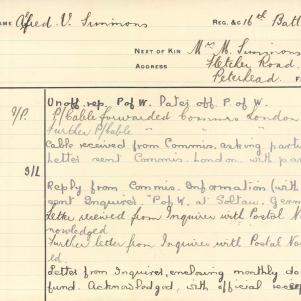 AME Alfred V. Simmons REG. & C 16th Batt
NEXT OF KIN Mrs M. Simmons
ADDRESS Fletcher Road.
Peterhead. F
Unoff. rep. P of W. Later off. P of W.
P/Cable forwarded Commrs London
Further P/Cable " " "
Cable received from Commis. asking parti
Letter sent Commis. London. with par
Reply from Commis. Information (with
sent Inquirer. "P of W. at Soltau. Germ
Letter received from Inquirer with Postal N
nowledged
Further letter from Inquirer with Postal No
ed.
Letter from Inquirer, enclosing monthly do
fund. Acknowledged, with official